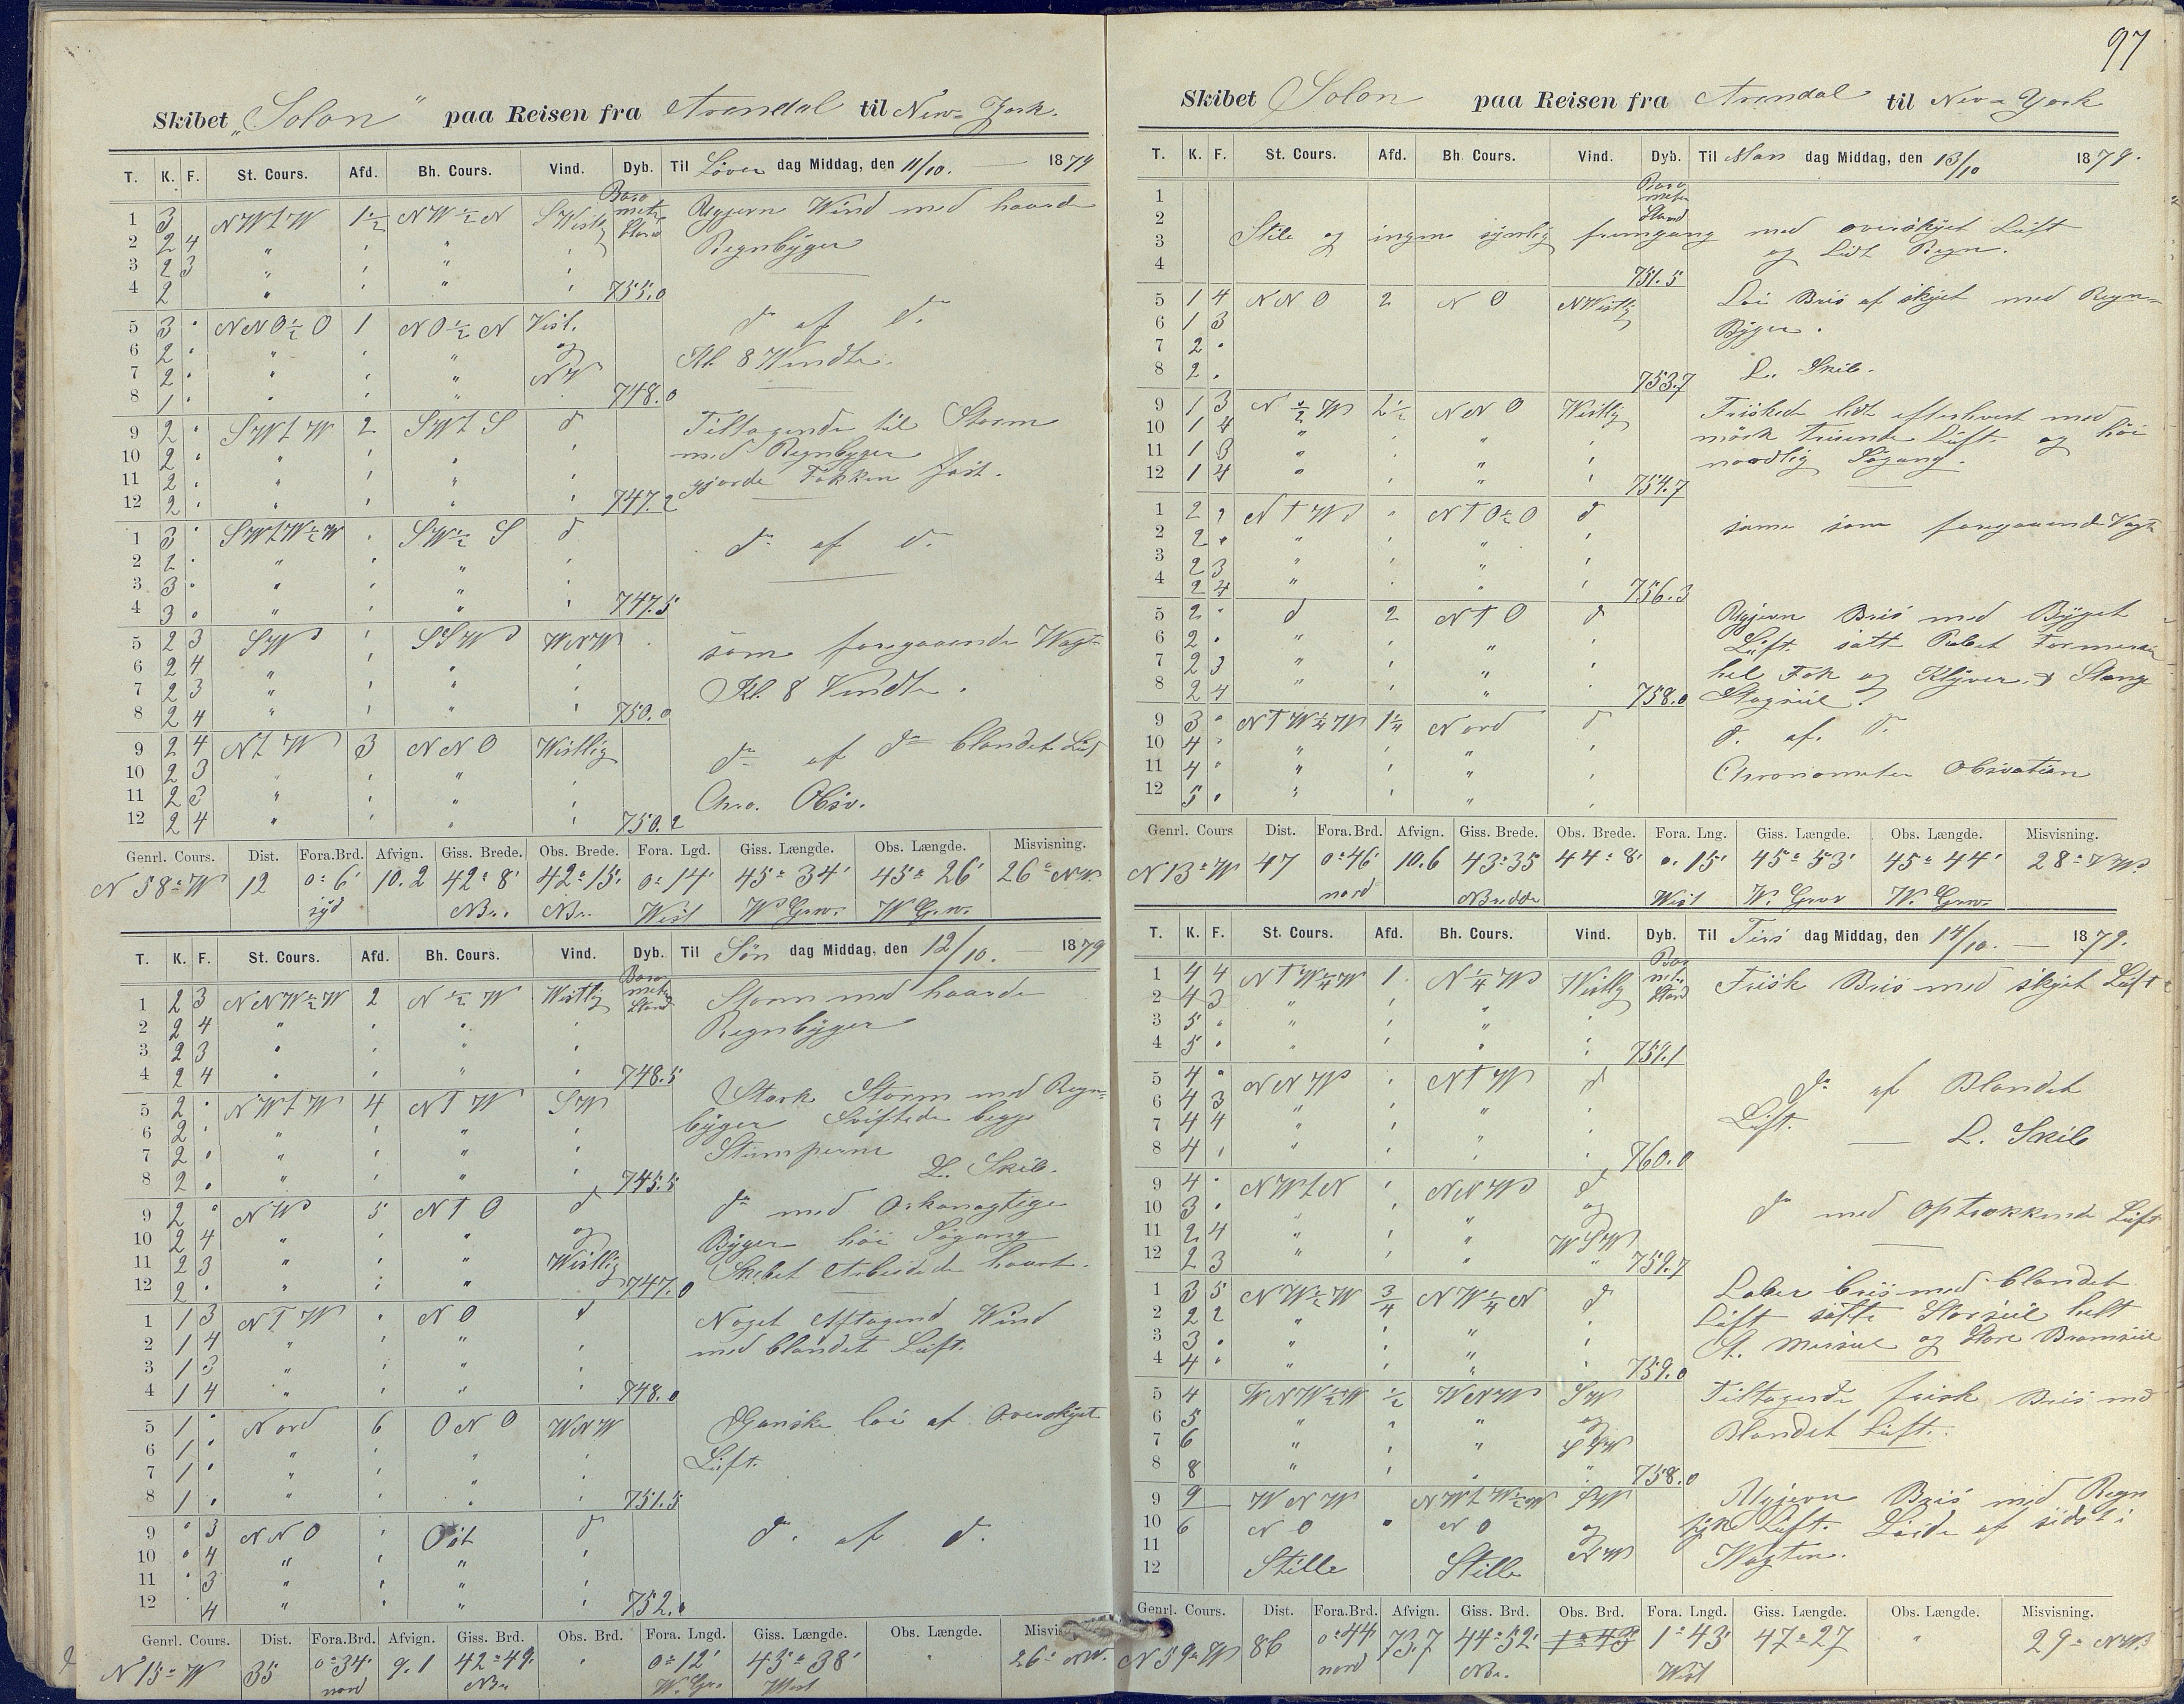 97
Skibet „Solon" paa Reisen fra Arendal til New-York.
T. K. F. St. Cours. Afd. Bh. Cours. Vind. Dyb. Til Löver dag Middag, den 11/10. — 1879
Barometer Stand
1 3 NWtW 1½ NW½N SVestlig Ugjevn Wind med haarde
2 2 4 " " " " Regnbÿger
3 2 3 " " " "
4 2 " " " " 755.0
5 3 NNO½O 1 NO½N Vest. do af do
6 2 " " " og Kl. 8 Vendte.
7 2 " " " NW
8 1 " " " 748.0
9 2 SWtW 2 SWtS d Tiltagende til Storm
10 2 " " " " med Regnbyger
11 2 " " " " gjorde Fokken fast.
12 2 " " " " 747.2
1 3 SWtW½W " SW½S d do af do
2 2 " " " "
3 3 " " " "
4 3 " " " " 747.5
5 2 3 SW " SSW WNW som foregaaende Wagt
6 2 4 " " " "
7 2 3 " " " " Kl. 8 Vendte.
8 2 4 " " " " 750.0
9 2 4 NtW 3 NNO Westlig do af do blandet Luft
10 2 3 " " " "
11 2 3 " " " " Chro. Obsv.
12 2 4 " " " " 750.2
Genrl. Cours. Dist. Fora.Brd. Afvign. Giss. Brede. Obs. Brede. Fora. Lgd. Giss. Længde. Obs. Længde. Misvisning.
N 58° W 12 0° 6' 10.2 42° 8' 42° 15' 0° 14' 45° 34' 45° 26' 26° NW.
syd NBr. NBr. West W Grw. W Grw.
T. K. F. St. Cours. Afd. Bh. Cours. Vind. Dyb. Til Sön dag Middag, den 12/10. — 1879
Barometer Stand
1 2 3 NNW½W 2 N½W Westlig Storm med haarde
2 2 4 " " " " Regnbÿger
3 2 3 " " " "
4 2 4 " " " " 748.5
5 2 NWtW 4 NTW SW Stærk Storm med Regn-
6 2 " " " " bÿger Sviftede begge
7 2 " " " " Stumperne
8 2 " " " " 745.5 L. Skib.
9 2 NW 5 NTO d do med Orkanagtige
10 2 4 " " " og Bÿger höi Sögang
11 2 3 " " " Westlig Skibet Arbeidede haart.
12 2 " " " 747.0
1 1 3 NTW " NO d Noget Aftagend Wind
2 1 4 " " " " med blandet Luft.
3 1 3 " " " "
4 1 4 " " " " 748.0
5 1 Nord 6 ONO WNW Ganske löi af Overskÿet
6 1 " " " " Luft.
7 1 " " " "
8 1 " " " " 751.5
9 3 NNO " Ost d do af do
10 4 " " " "
11 3 " " " "
12 4 " " " " 752.
Genrl. Cours. Dist. Fora.Brd. Afvign. Giss. Brd. Obs. Brd. Fora. Lngd. Giss. Længde. Obs. Længde. Misvisning.
N 15° W 35 0° 34' 9.1 42° 49' " 0° 12' 45° 38' " 26° NW.
nord NBr W. Gr. West
Skibet Solon paa Reisen fra Arendal til New-York
T. K. F. St. Cours. Afd. Bh. Cours. Vind. Dyb. Til Man dag Middag, den 13/10 1879.
Barometer Stand
1
2 Stille og ingen synlig fremgang med overskÿet Luft
3 og Lidt Regn.
4 751.5
5 1 4 NNO 2 NO NWestlig Löi Bris af skÿet med Regn-
6 1 3 Bÿger.
7 2
8 2 753.7 L. Skib.
9 1 3 N½W 2½ NNO Westlig Friskede lidt efterhvert med
10 1 4 " " " " mörk Truende Luft og höi
11 1 3 " " " " nordlig Sögang.
12 1 4 " " " " 754.7
1 2 NTW " NTO½O d samme som foregaaende Vagt
2 2 " " " "
3 2 3 " " " "
4 2 4 " " " " 756.3
5 2 d 2 NTO d Ugjevn Bris med Bÿget
6 2 " " " " Luft satt Rebet Formersseil
7 2 3 " " " " hel Fok og Klÿver & Stange
8 2 4 " " " " 758.0 Stagseil
9 3 NTW¼W 1¼ Nord d d. af. d.
10 4 " " " "
11 4 " " " " Chronometer Obsvation
12 5 " " " "
Genrl. Cours Dist. Fora.Brd. Afvign. Giss. Brede. Obs. Brede. Fora. Lng. Giss. Længde. Obs. Længde. Misvisning.
N 13° W 47 0° 46' 10.6 43° 35 44° 8' 0° 15' 45° 53' 45° 44' 28° NW.
nord NBredde West W. Grw W. Grw.
T. K. F. St. Cours. Afd. Bh. Cours. Vind. Dyb. Til Tirs dag Middag, den 14/10. — 1879.
Barometer Stand
1 4 4 NTW¼W 1 N¼W Westlig Frisk Bris med skÿet Luft
2 4 3 " " " "
3 5 " " " "
4 5 " " " " 759.1
5 4 NNW " NTW d do af Blandet
6 4 3 " " " " Luft.
7 4 4 " " " " — L. Skib
8 4 " " " " 760.0
9 4 NWtN " NNW d
10 3 " " " og do med Optrækkende Luft
11 2 4 " " " WSW
12 2 3 " " " " 759.7
1 3 5 NW½W ¾ NW¼N d Laber bris med blandet
2 2 2 " " " " Luft satte Storseil helt
3 3 " " " " St. Mersseil og Store Bramseil
4 4 " " " " 759.0
5 4 WNW½W ½ WNW SW Tiltagende frisk Bris med
6 5 " " " og Blandet Luft.
7 6 " " " SSW
8 8 " " " " 758.0
9 9 WNW NWtW½W SW Ugjevn Bris med Regn
10 6 NO " NO og tÿk Luft. Löide af sidst i
11 NW Wagten.
12 Stille Stille
Genrl. Cours. Dist. Fora.Brd. Afvign. Giss. Brd. Obs. Brd. Fora. Lngd. Giss. Længde. Obs. Længde. Misvisning.
N 59° W 86 0° 44' 73.7 44° 52' 1° 43 1° 43' 47° 27 " 29° NW.
nord NBr. West